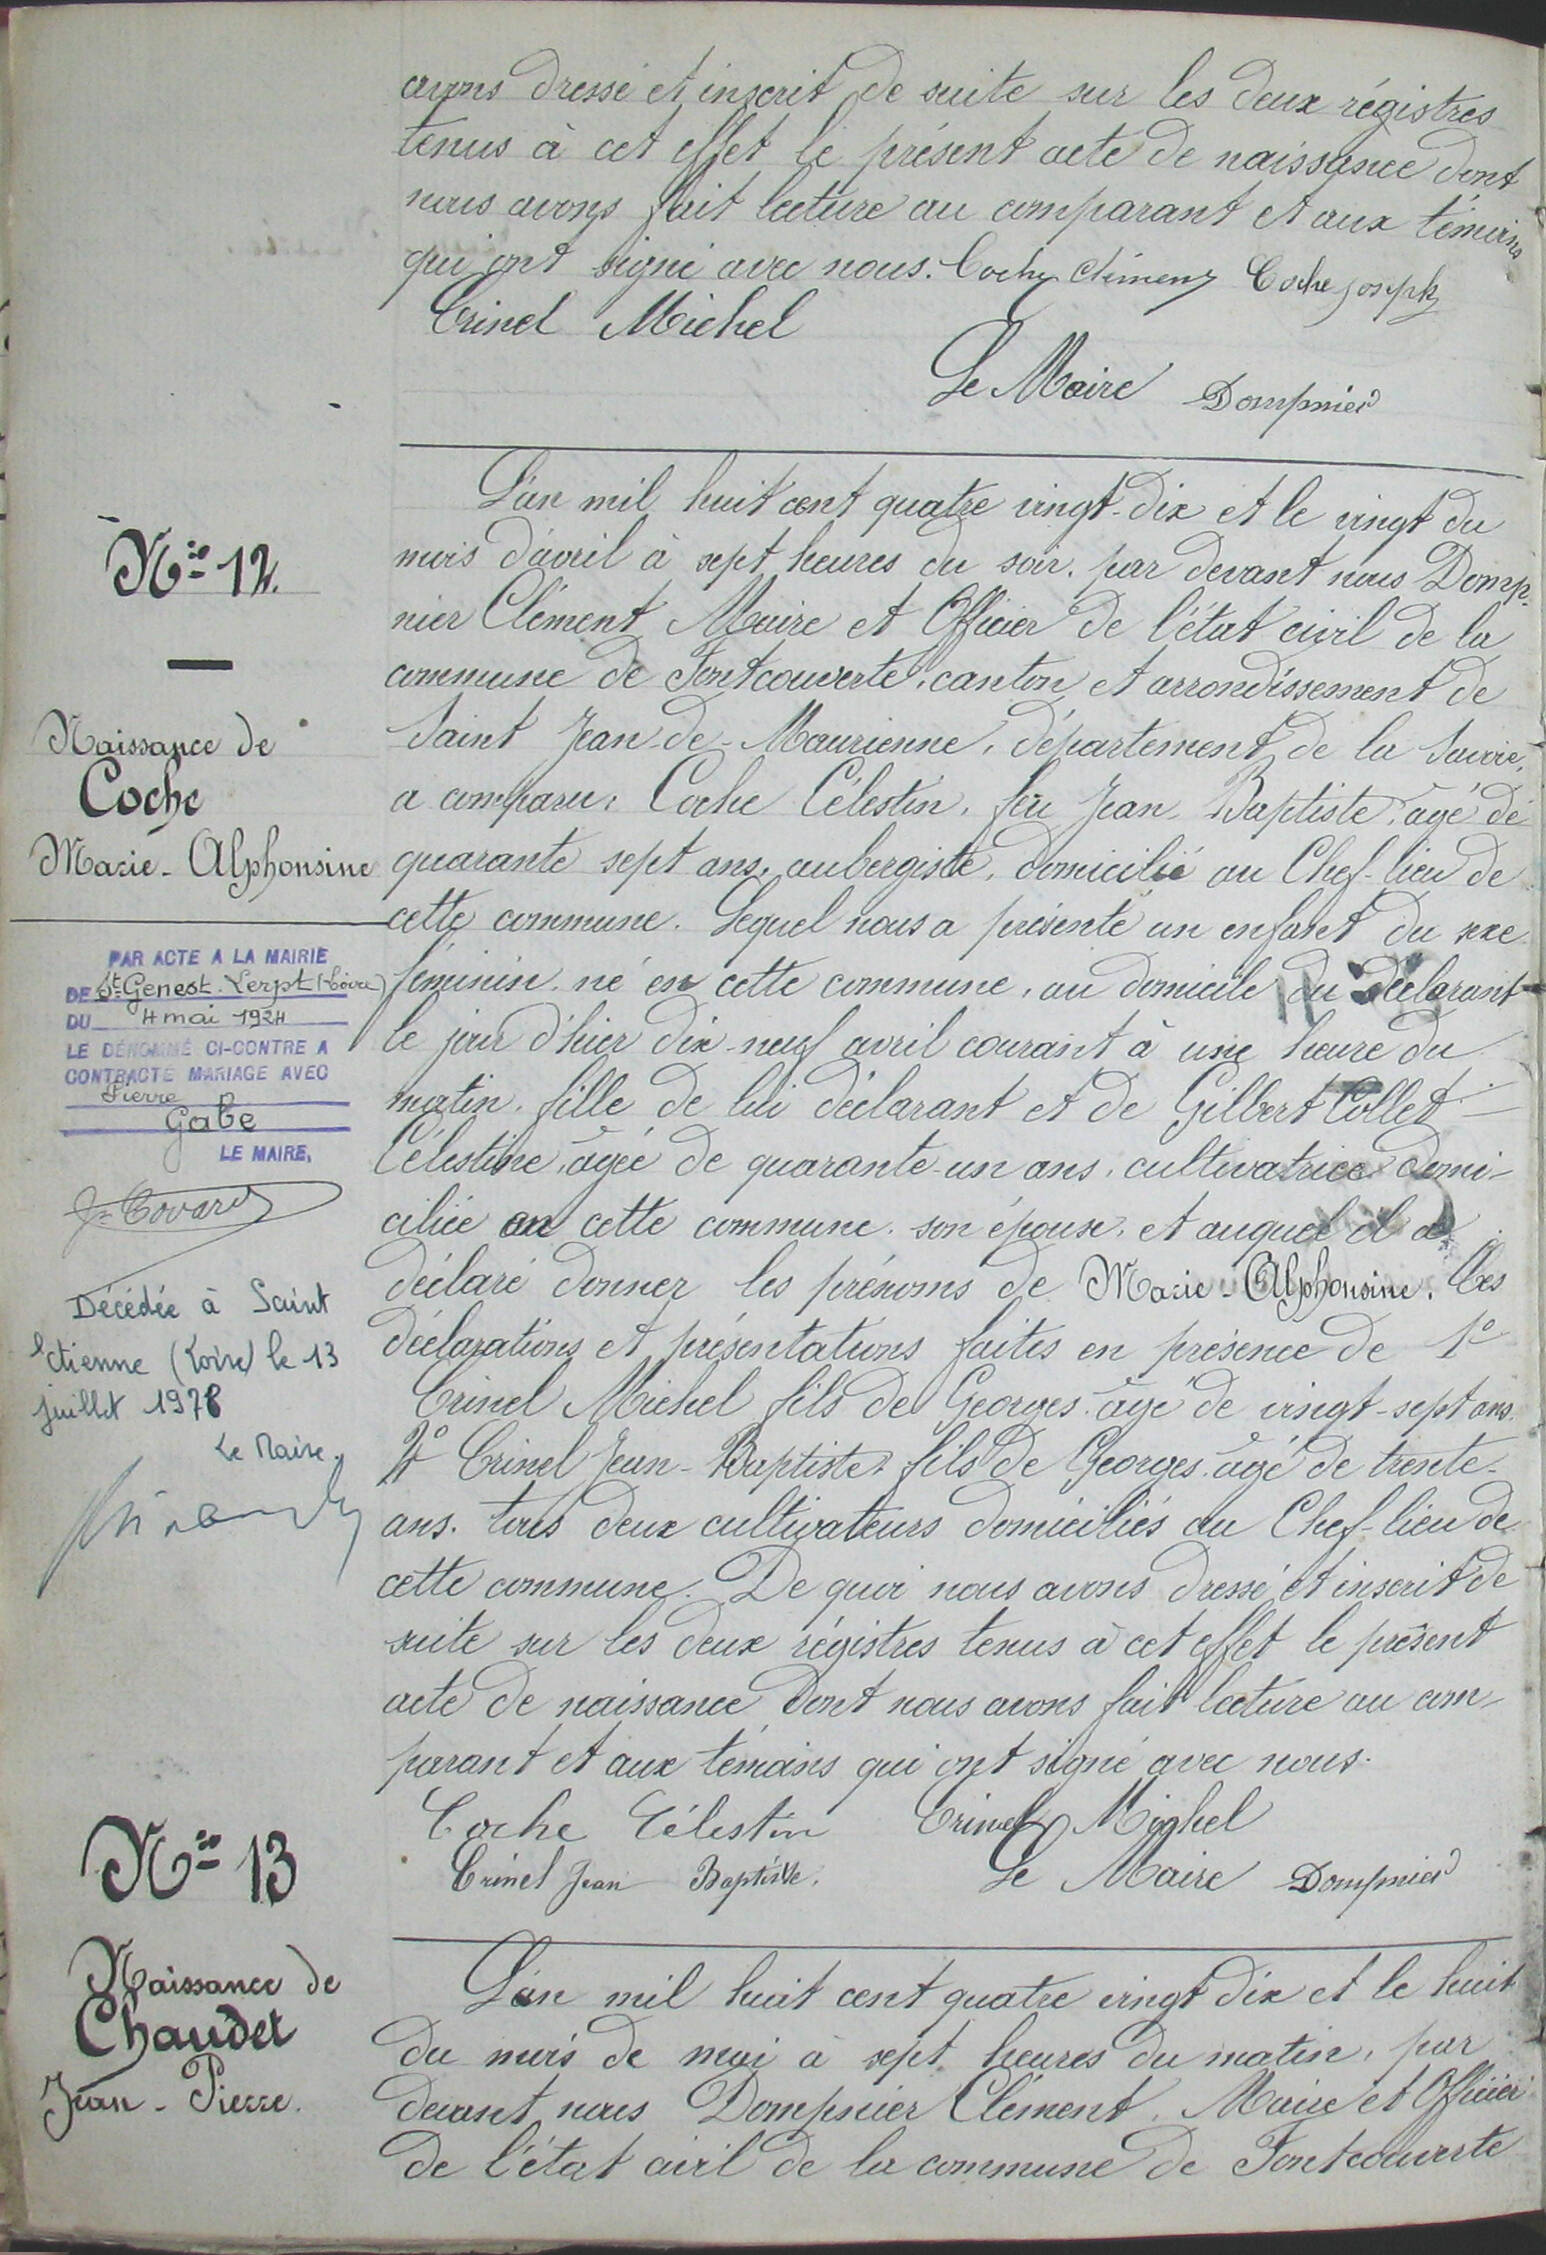 avons dressé et inscrit de suite sur les deux régistres
tenus à cet effet le présent acte de naissance dont
nous avons fait lecture au comparant et aux témoins
qui ont signé avec nous. Coche Clément Coche Joseph
Crinel Michel
Le Maire Dompnier
Nº 12.
Naissance de
Coche
Marie-Alphonsine
L'an mil huit cent quatre vingt-dix et le vingt du
mois d'avril à sept heures du soir. par devant nous Domp-
nier Clément Maire et Officier de l'état civil de la
commune de Fontcouverte, canton et arrondissement de
Saint Jean-de-Maurienne, département de la Savoie,
a comparu, Coche Célestin, feu Jean Baptiste, agé de
quarante sept ans, aubergiste, domicilié au Chef-lieu de
cette commune. Lequel nous a présenté un enfant du sexe
féminin, né en cette commune, au domicile du déclarant
le jour d'hier dix-neuf avril courant à une heure du
matin, fille de lui déclarant et de Gilbert Collet
Célestine, agée de quarante-un ans, cultivatrice domi-
ciliée en cette commune, son épouse, et auquel il a
déclaré donner les prénoms de Marie-Alphonsine. Les
déclarations et présentations faites en présence de 1º
Crinel Michel fils de Georges agé de vingt-sept ans.
2º Crinel Jean-Baptiste, fils de Georges, agé de trente-
ans. tous deux cultivateurs domiciliés au Chef-lieu de
cette commune. De quoi nous avons dressé et inscrit de
suite sur les deux régistres tenus à cet effet le présent
acte de naissance dont nous avons fait lecture au com-
parant et aux témoins qui ont signé avec nous.
Coche Célestin Crinel Michel
Crinel Jean Baptiste. Le Maire Dompnier
PAR ACTE A LA MAIRIE
DE St-Genest-Lerpt (Loire)
DU 4 mai 1924
LE DÉNOMMÉ CI-CONTRE A
CONTRACTÉ MARIAGE AVEC
Pierre
Gabe
LE MAIRE,
Décédée à Saint
Etienne (Loire) le 13
juillet 1978
Le Maire.
Nº 13
Naissance de
Chaudet
Jean-Pierre.
L'an mil huit cent quatre vingt dix et le huit
du mois de mai à sept heures du matin, par
devant nous Dompnier Clément, Maire et Officier
de l'état civil de la commune de Fontcouverte